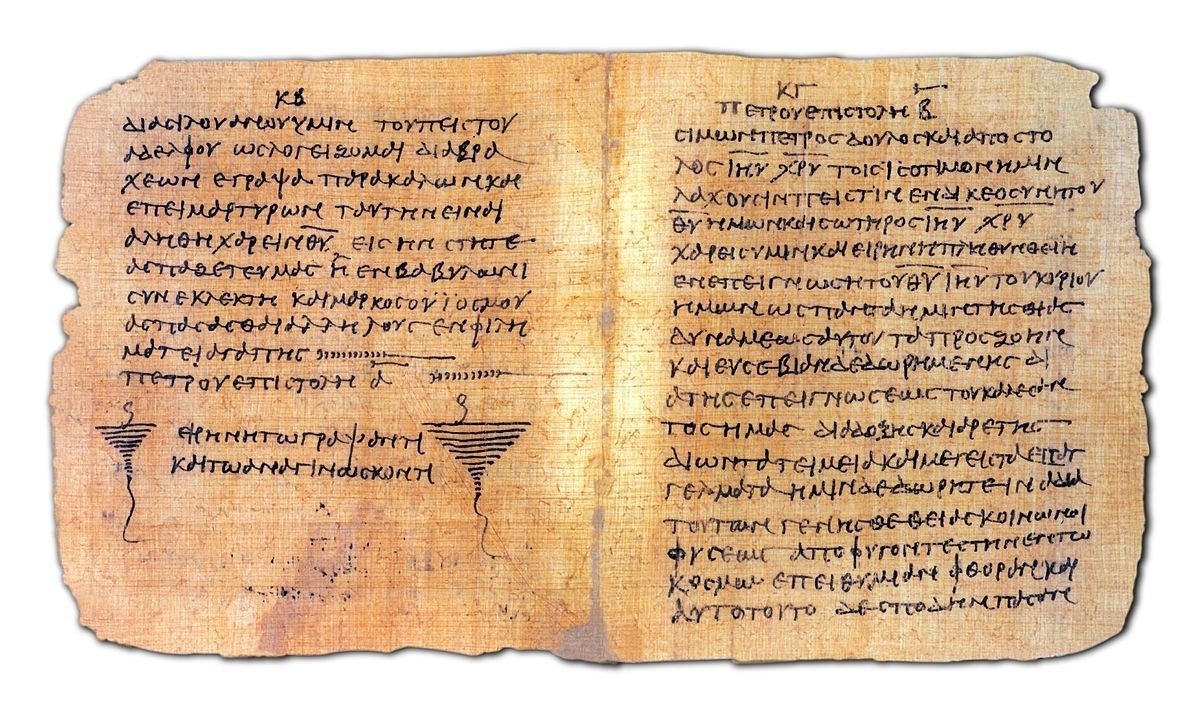 ΚΒ
ΔΙΑϹΙΛΟΥΑΝΩΥΥΜΙΝ ΤΟΥΠΕΙϹΤΟΥ
ΑΔΕΛΦΟΥ ΩϹΛΟΓΕΙΖΟΜΑΙ ΔΙΑΒΡΑ
ΧΕΩΝ ΕΓΡΑΨΑ ΠΑΡΑΚΑΛΩΝΚΑΙ
ΕΠΕΙΜΑΡΤΥΡΩΝ ΤΑΥΤΗΝΕΙΝΑΙ
ΑΛΗΘΗΧΑΡΕΙΝΘ̅Υ̅ ΕΙϹΗΝϹΤΗΤΕ
ΑϹΠΑΖΕΤΕΥΜΑϹ Η ΕΝΒΑΒΥΛΩΝΙ
ϹΥΝΕΚΛΕΚΤΗ ΚΑΙΜΑΡΚΟϹΟΥΙΟϹΜΟΥ
ΑϹΠΑϹΑϹΘΑΙΑΛΛΗΛΟΥϹ ΕΝΦΙΛΗ
ΜΑΤΕΙΑΓΑΠΗϹ
ΠΕΤΡΟΥΕΠΙϹΤΟΛΗ Α̅
ΕΙΡΗΝΗΤΩΓΡΑΨΑΝΤΙ
ΚΑΙΤΩΑΝΑΓΙΝΩϹΚΟΝΤΙ
ΚΓ
ΠΕΤΡΟΥΕΠΙϹΤΟΛΗ Β̅
ϹΙΜΩΝΠΕΤΡΟϹΔΟΥΛΟϹΚΑΙΑΠΟϹΤΟ
ΛΟϹΙ̅Η̅Υ̅ Χ̅Ρ̅Υ̅ ΤΟΙϹΙϹΟΤΙΜΟΝΗΜΙΝ
ΛΑΧΟΥϹΙΝΠΕΙϹΤΙΝ ΕΝΔΙΚΕΟϹΥΝΗΤΟΥ
Θ̅Υ̅ΗΜΩΝΚΑΙϹΩΤΗΡΟϹΙ̅Η̅Υ̅ Χ̅Ρ̅Υ̅
ΧΑΡΕΙϹΥΜΙΝΚΑΙΕΙΡΗΝΗΠΛΗΘΥΝΘΕΙΗ
ΕΝΕΠΕΙΓΝΩϹΗΤΟΥΘ̅Υ̅Ι̅Η̅Υ̅ΤΟΥΚΥΡΙΟΥ
ΗΜΩΝΩϹΠΑΝΤΑΗΜΙΝΤΗϹΘΙΑϹ
ΔΥΝΑΜΕΩϹΑΥΤΟΥΤΑΠΡΟϹΖΟΗΝ
ΚΑΙΕΥϹΕΒΙΑΝΔΕΔΩΡΗΜΕΝΗϹ ΔΙ
ΑΤΗϹΕΠΕΙΓΝΩϹΕΩϹΤΟΥΚΑΛΕϹΑΝ
ΤΟϹΗΜΑϹ ΔΙΑΔΟΞΗϹΚΑΙΑΡΕΤΗϹ
ΔΙΩΝΤΑΤΕΙΜΕΙΑΚΑΙΜΕΓΕΙϹΤΑΕΠΑΓ
ΓΕΛΜΑΤΑ ΗΜΙΝΔΕΔΩΡΗΤΕΙΝΑΔΙΑ
ΤΟΥΤΩΝ ΓΕΝΗϹΘΕΘΕΙΑϹΚΟΙΝΩΝΟΙ
ΦΥϹΕΩϹ ΑΠΟΦΥΓΟΝΤΕϹΤΗΝΕΝΤΩ
ΚΟϹΜΩ ΕΠΕΙΘΥΜΙΑΝ ΦΘΟΡΑΝ ΚΑΙ
ΑΥΤΟΤΟΥΤΟ ΔΕϹΠΟΔΗΝΠΑϹΑΝ